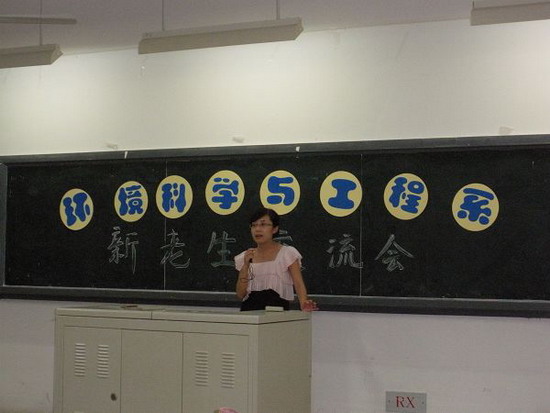 环境科学与工程系
新老生交流会
RX